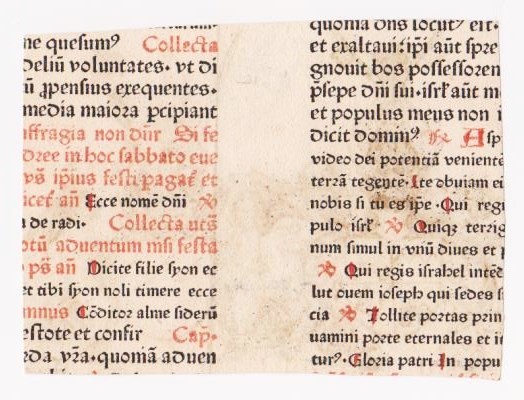 ne quesumꝰ Collecta
deliũ voluntates. vt di
ũ ꝓpensius exequentes.
media maiora ꝑcipiant
uffragia non dñr Si fe
dree in hoc sabbato eue
vꝭ ip̃ius festi pagat᷑ et
icet᷑ añ Ecce nomẽ dñi ℣
a de radi. Collecta utꝭ
otũ aduentum nisi festa
pꝭ añ Dicite filie syon et
et tibi syon noli timere ecce
mnus Cõditor alme siderũ
estote et confir Cap.
rda vr̃a. quoniã aduen
quonia dns locutꝰ est.
et exaltaui: ip̃i aũt spre
gnouit bos possessorem
p̃sepe dñi sui. isrl̃ aũt m
et populus meus non i
dicit dominꝰ ℟ Asp
video dei potentiã veniente
terrã tegentẽ. Ite obuiam ei
nobis si tu es ip̃e. Qui regn
pulo isrl̃ ℣ Quiqꝫ terrig
num simul in vnũ diues et p
℣ Qui regis israhel intẽd
lut ouem ioseph qui sedes s
cia ℣ Tollite portas prin
uamini porte eternales et in
turꝰ. Gloria patri In popu